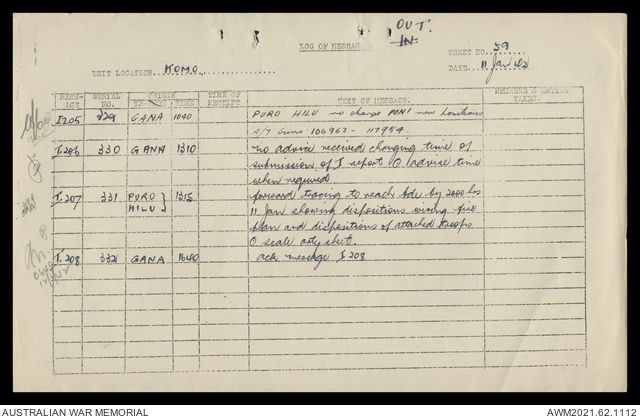 OUT!
IN
LOG OF MESSAG
SHEET NO. 59
UNIT LOCATION. KOMO
DATE. 11 Jan 42
MESS-AGE SERIAL NO. ORIGIN TIME TIME OF RECEIPT TEXT OF MESSAGE. TAKEN.
I205 329 GANA 1040 PURO HILU no change new locations
A/T Guns. 106962 - 117954.
I.206 330 GANA 1310 no advice received changing time of
submission of I report O advise time
when required
I.207 331 PURO HILU } 1315 forward tracing to reach bde by 2000 hrs
11 Jan showing dispositions wiring fire
plan and dispositions of attached troops
O scale
I.208 332 GANA 1640 ack message I 208
AUSTRALIAN WAR MEMORIAL
AWM2021.62.1112